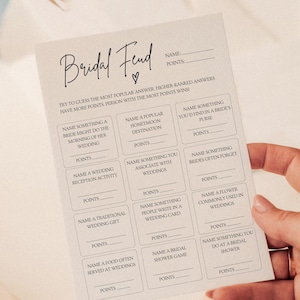 Bridal Feud
NAME:
POINTS:
TRY TO GUESS THE MOST POPULAR ANSWER. HIGHER RANKED ANSWERS
HAVE MORE POINTS. PERSON WITH THE MOST POINTS WINS!
NAME SOMETHING A
BRIDE MIGHT DO THE
MORNING OF HER
WEDDING
POINTS
NAME A POPULAR
HONEYMOON
DESTINATION
POINTS
NAME SOMETHING
YOU'D FIND IN A BRIDE'S
PURSE
POINTS
NAME A WEDDING
RECEPTION ACTIVITY
POINTS
NAME SOMETHING YOU
ASSOCIATE WITH
WEDDINGS
POINTS
NAME SOMETHING
BRIDES OFTEN FORGET
POINTS
NAME A TRADITIONAL
WEDDING GIFT
POINTS
NAME SOMETHING
PEOPLE WRITE IN A
WEDDING CARD
POINTS
NAME A FLOWER
COMMONLY USED IN
WEDDINGS
POINTS
NAME A FOOD OFTEN
SERVED AT WEDDINGS
POINTS
NAME A BRIDAL
SHOWER GAME
POINTS
NAME SOMETHING YOU
DO AT A BRIDAL
SHOWER
POINTS